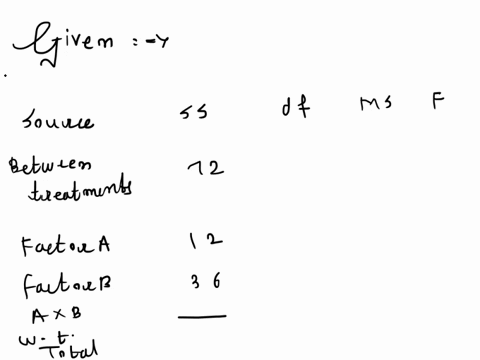 Given :-
Source SS df MS F
Between treatments 72
Factor A 12
Factor B 36
A x B
w.t.
Total